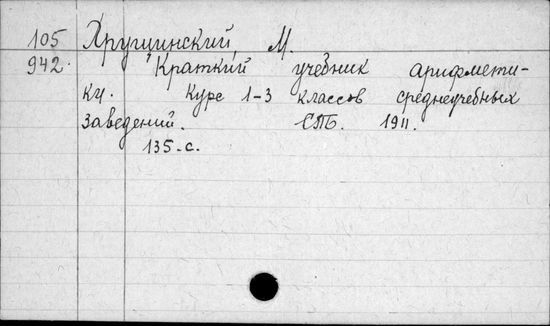 105 Хрущинский, М.
942. Краткий учебник арифмети-
ки. Курс 1-3 классов среднеучебных
заведений. СПБ. 1911.
135-с.